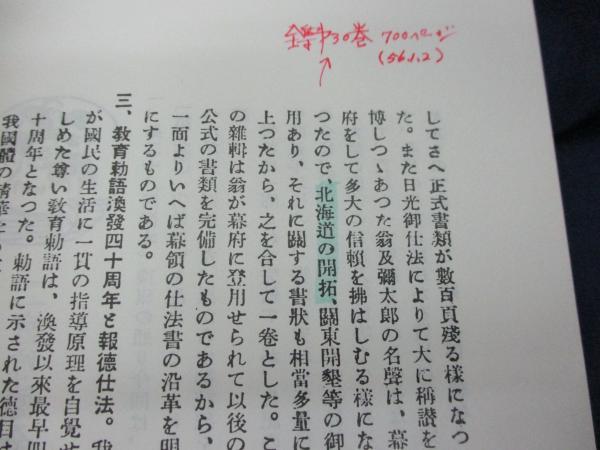 全学才30巻 700ページ
(56.1.2)
してさへ正式書類が數百頁殘る樣になつ
た。また日光御仕法によりて大に稱讃を
博しつゝあつた翁及彌太郎の名聲は、幕
府をして多大の信賴を拂はしむる樣にな
つたので、北海道の開拓、關東開墾等の御
用あり、それに關する書狀も相當多量に
上つたから、之を合して一卷とした。こ
の雜輯は翁が幕府に登用せられて以後の
公式の書類を完備したものであるから、
一面よりいへば幕領の仕法書の沿革を明
にするものである。
三、敎育勅語渙發四十周年と報德仕法。我
が國民の生活に一貫の指導原理を自覺せ
しめた尊い敎育勅語は、渙發以來最早四
十周年となつた。勅語に示された德目は
我國體の精華